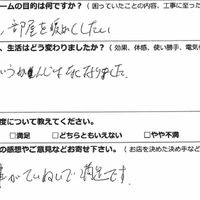 ームの目的は何ですか？（困っていたことの内容、工事に至った
部屋を暖かくしたい
、生活はどう変わりましたか？（効果、体感、使い勝手、電気
なくなりました。
度について教えてください。
□満足 □どちらともいえない □やや不満
の感想やご意見などお寄せ下さい。（お店を決めた決め手など
がていねいで満足です。